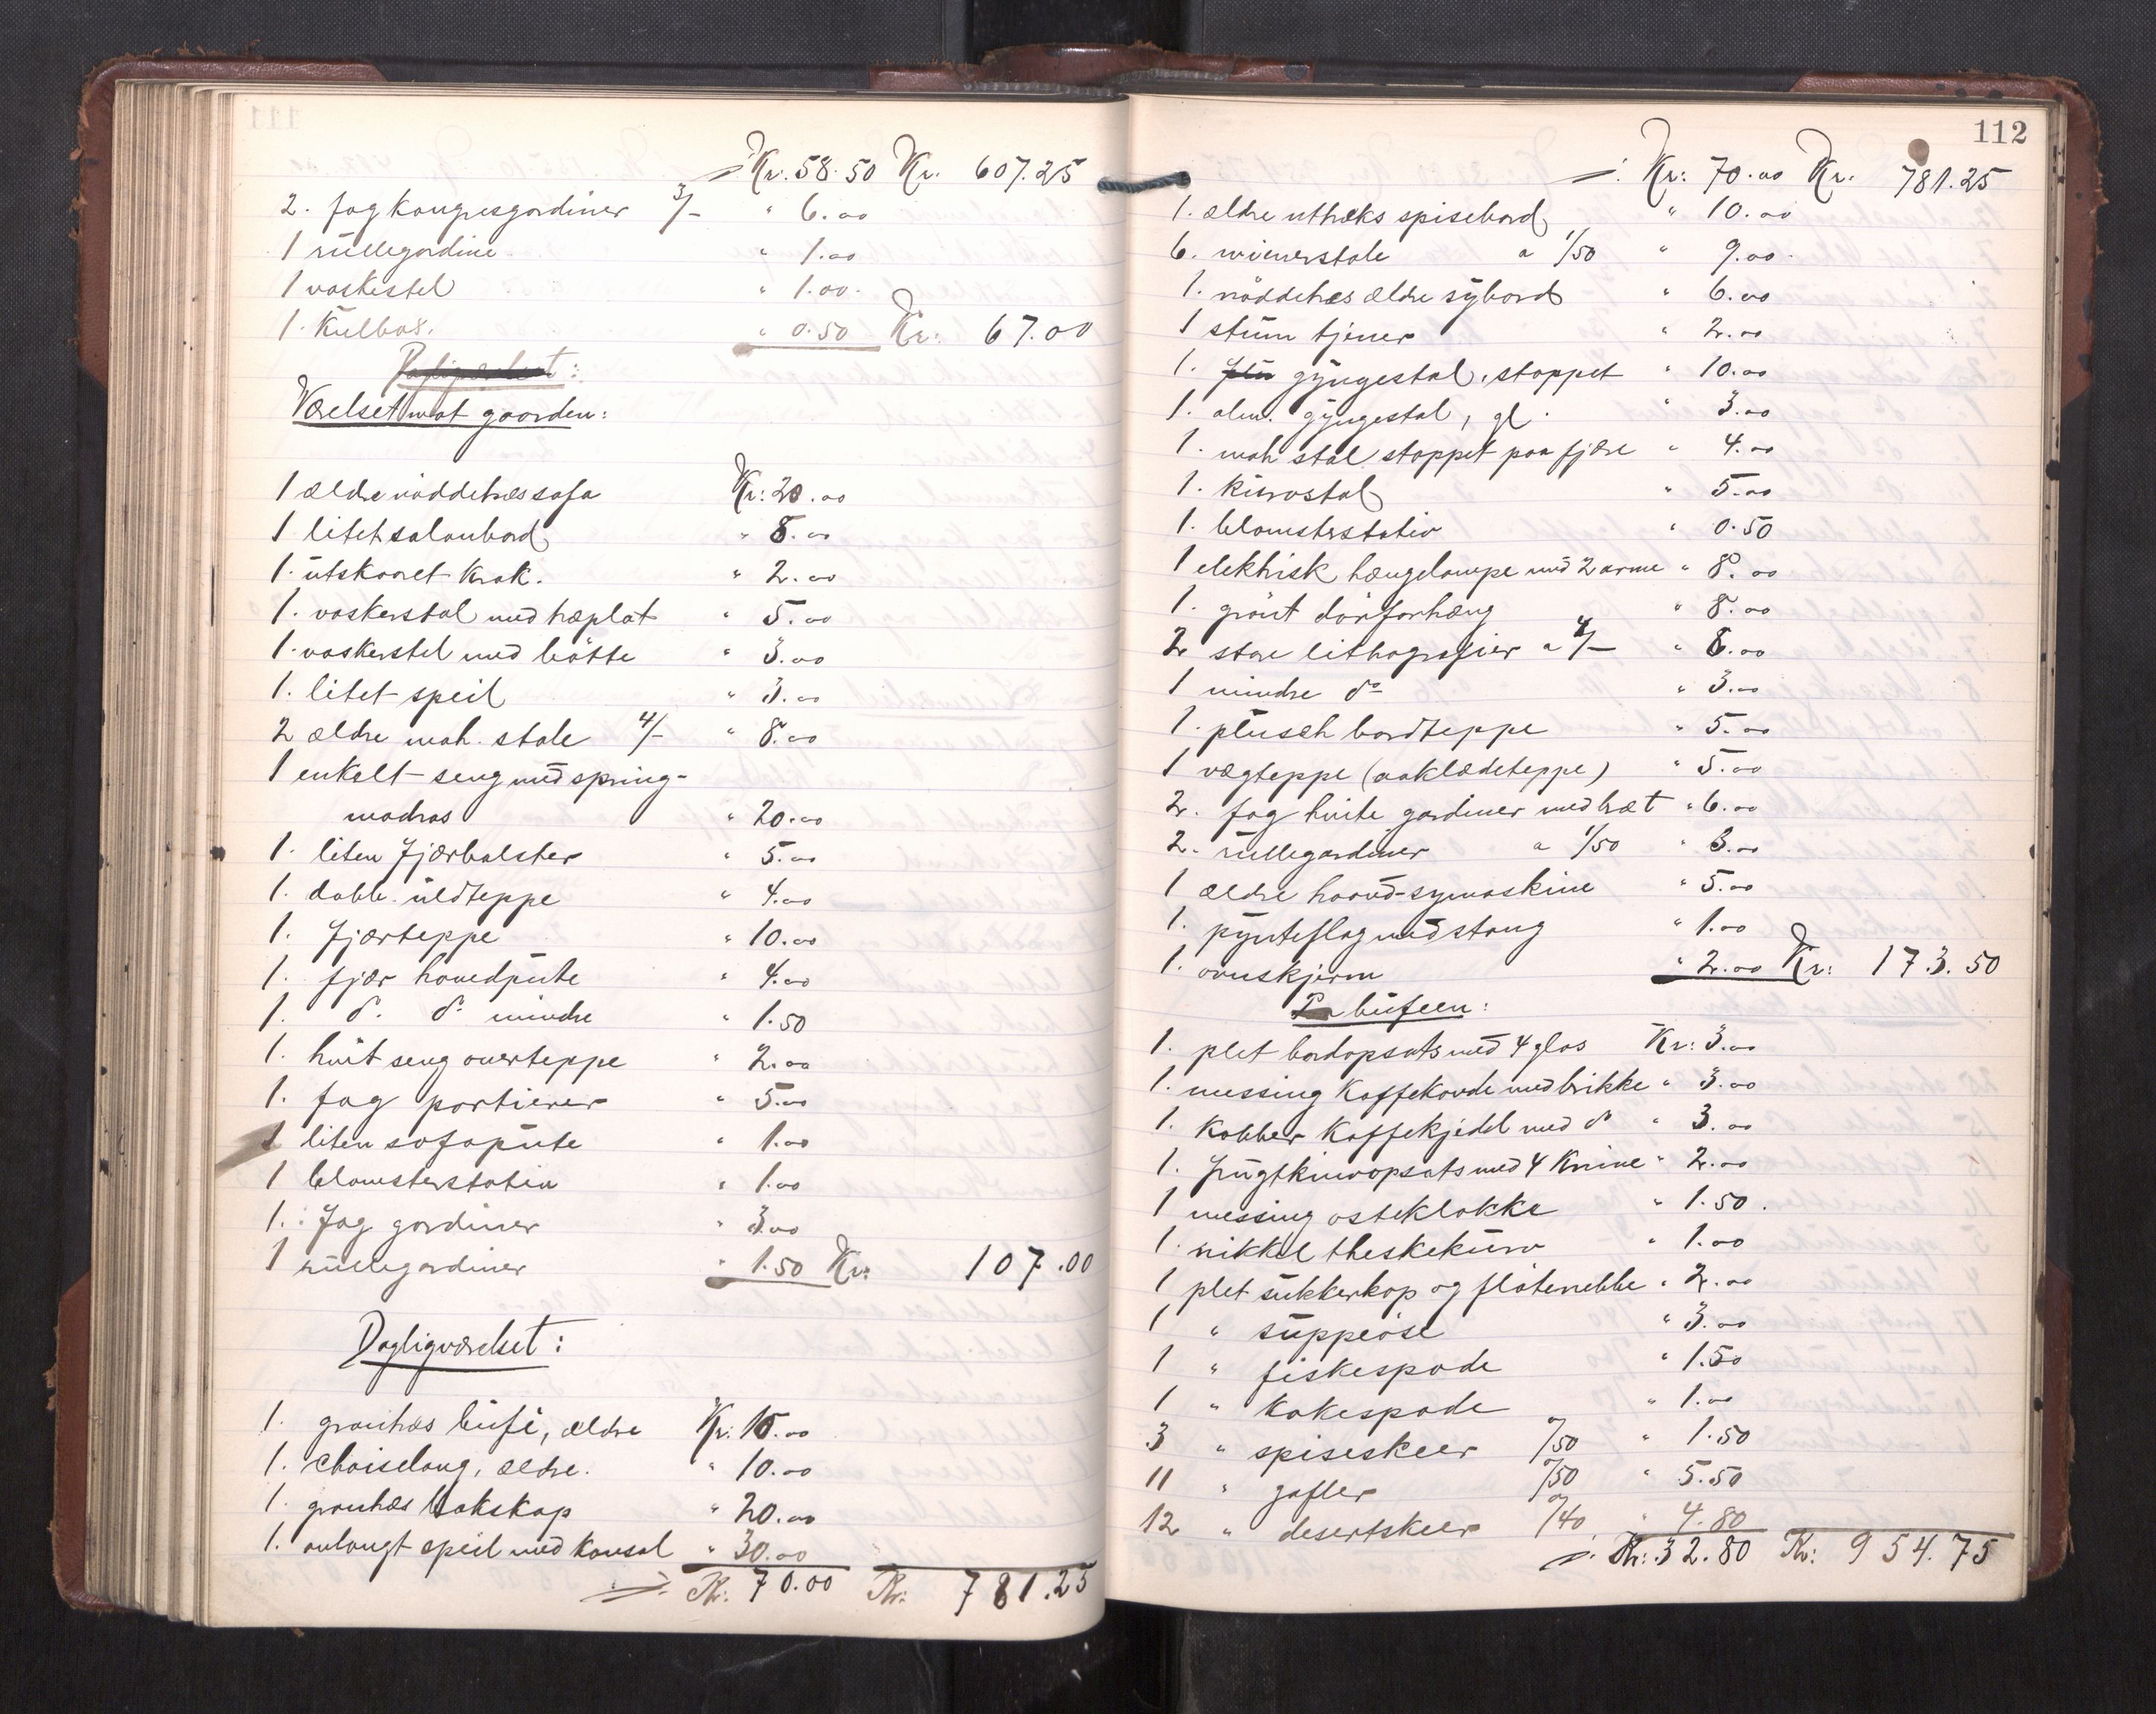 Kr. 58.50 Kr. 607.25
2. fag kongresgardiner 3/- " 6.00
1 rullegardine " 1.00
1 vaskestel " 1.00
1. Kulbox. " 0.50 Kr: 67.00
Værelset mot gaarden:
1 ældre nøddetræs sofa Kr: 20.00
1 litet salonbord " 8.00
1. utskaaret krak. " 2.00
1. vaskerstol med træplat " 5.00
1. vaskerstel med bøtte " 3.00
1. litet speil " 3.00
2 ældre mah. stole 4/- " 8.00
1 enkelt seng med spring-
madras " 20.00
1. liten fjærbolster " 5.00
1. dobb. uldteppe " 4.00
1. fjærteppe " 10.00
1. fjær hovedpute " 4.00
1. do. do. mindre " 1.50
1. hvit seng overteppe " 2.00
1. fag portierer " 5.00
1 liten sofapute " 1.00
1 blomsterstativ " 1.00
1. fag gardiner " 3.00
1 rullegardiner " 1.50 Kr: 107.00
Dagligværelset:
1. grantræs bufé, ældre Kr: 10.00
1. Chaiselong, ældre. " 10.00
1. grantræs bokskap " 20.00
1. avlangt speil med konsol " 30.00
Kr. 70.00 Kr: 781.25
112
Kr: 70.00 Kr. 781.25
1. ældre uttræks spisebord " 10.00
6. wienerstole a 1/50 " 9.00
1. nøddetræs ældre sybord " 6.00
1 stum tjener " 2.00
1. gyngestol, stoppet " 10.00
1. alm. gyngestol, gl. " 3.00
1. mah stol stoppet paa fjære " 4.00
1. kurvstol " 5.00
1. blomsterstativ " 0.50
1 elektrisk hængelampe med 2 arme " 8.00
1. grønt dørforhæng " 8.00
2 store lithografier a 4/- " 8.00
1 mindre do " 3.00
1. plusch bordteppe " 5.00
1 vægteppe (aaklædeteppe) " 5.00
2. fag hvite gardiner med bræt " 6.00
2. rullegardiner a 1/50 " 3.00
1 ældre haand-symaskine " 5.00
1. pynteflag med stang " 1.00
1. ovnskjerm " 2.00 Kr: 173.50
Paa bufeen:
1. plet bordopsats med 4 glas Kr: 3.00
1. messing kaffekande med brikke " 3.00
1. kobber kaffekjedel med do " 3.00
1. frugtkurvopsats med 4 Kurve " 2.00
1 messing osteklokke " 1.50.
1. nikkel theskekurv " 1.00
1 plet sukkerkop og fløtenebbe " 2.00
1 " suppeøse " 3.00
1 " fiskespade " 1.50
1 " kakespade " 1.00
3 " spiseskeer 0/50 " 1.50
11 " gafler 0/50 " 5.50
12 " desertskeer 0/40 " 4.80
Kr: 32.80 Kr: 954.75